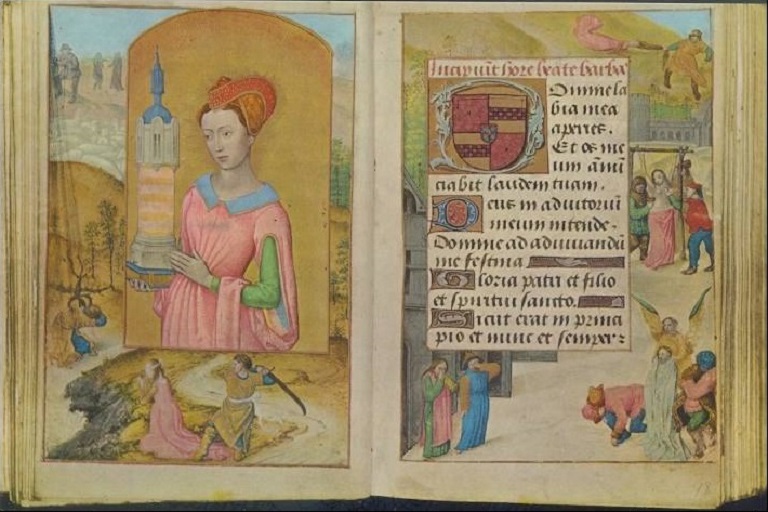 Incipiu͂t hore beate barba
Domine la
bia mea
aperies.
Et os me
um an͂u͂
ciabit laudem tuam.
Deus in adiutoriu͂
meum intende.
Domine ad adiuuandu͂
me festina
Gloria patri et filio
et spiritui sancto.
Sicut erat in princi
pio et nunc et semper: